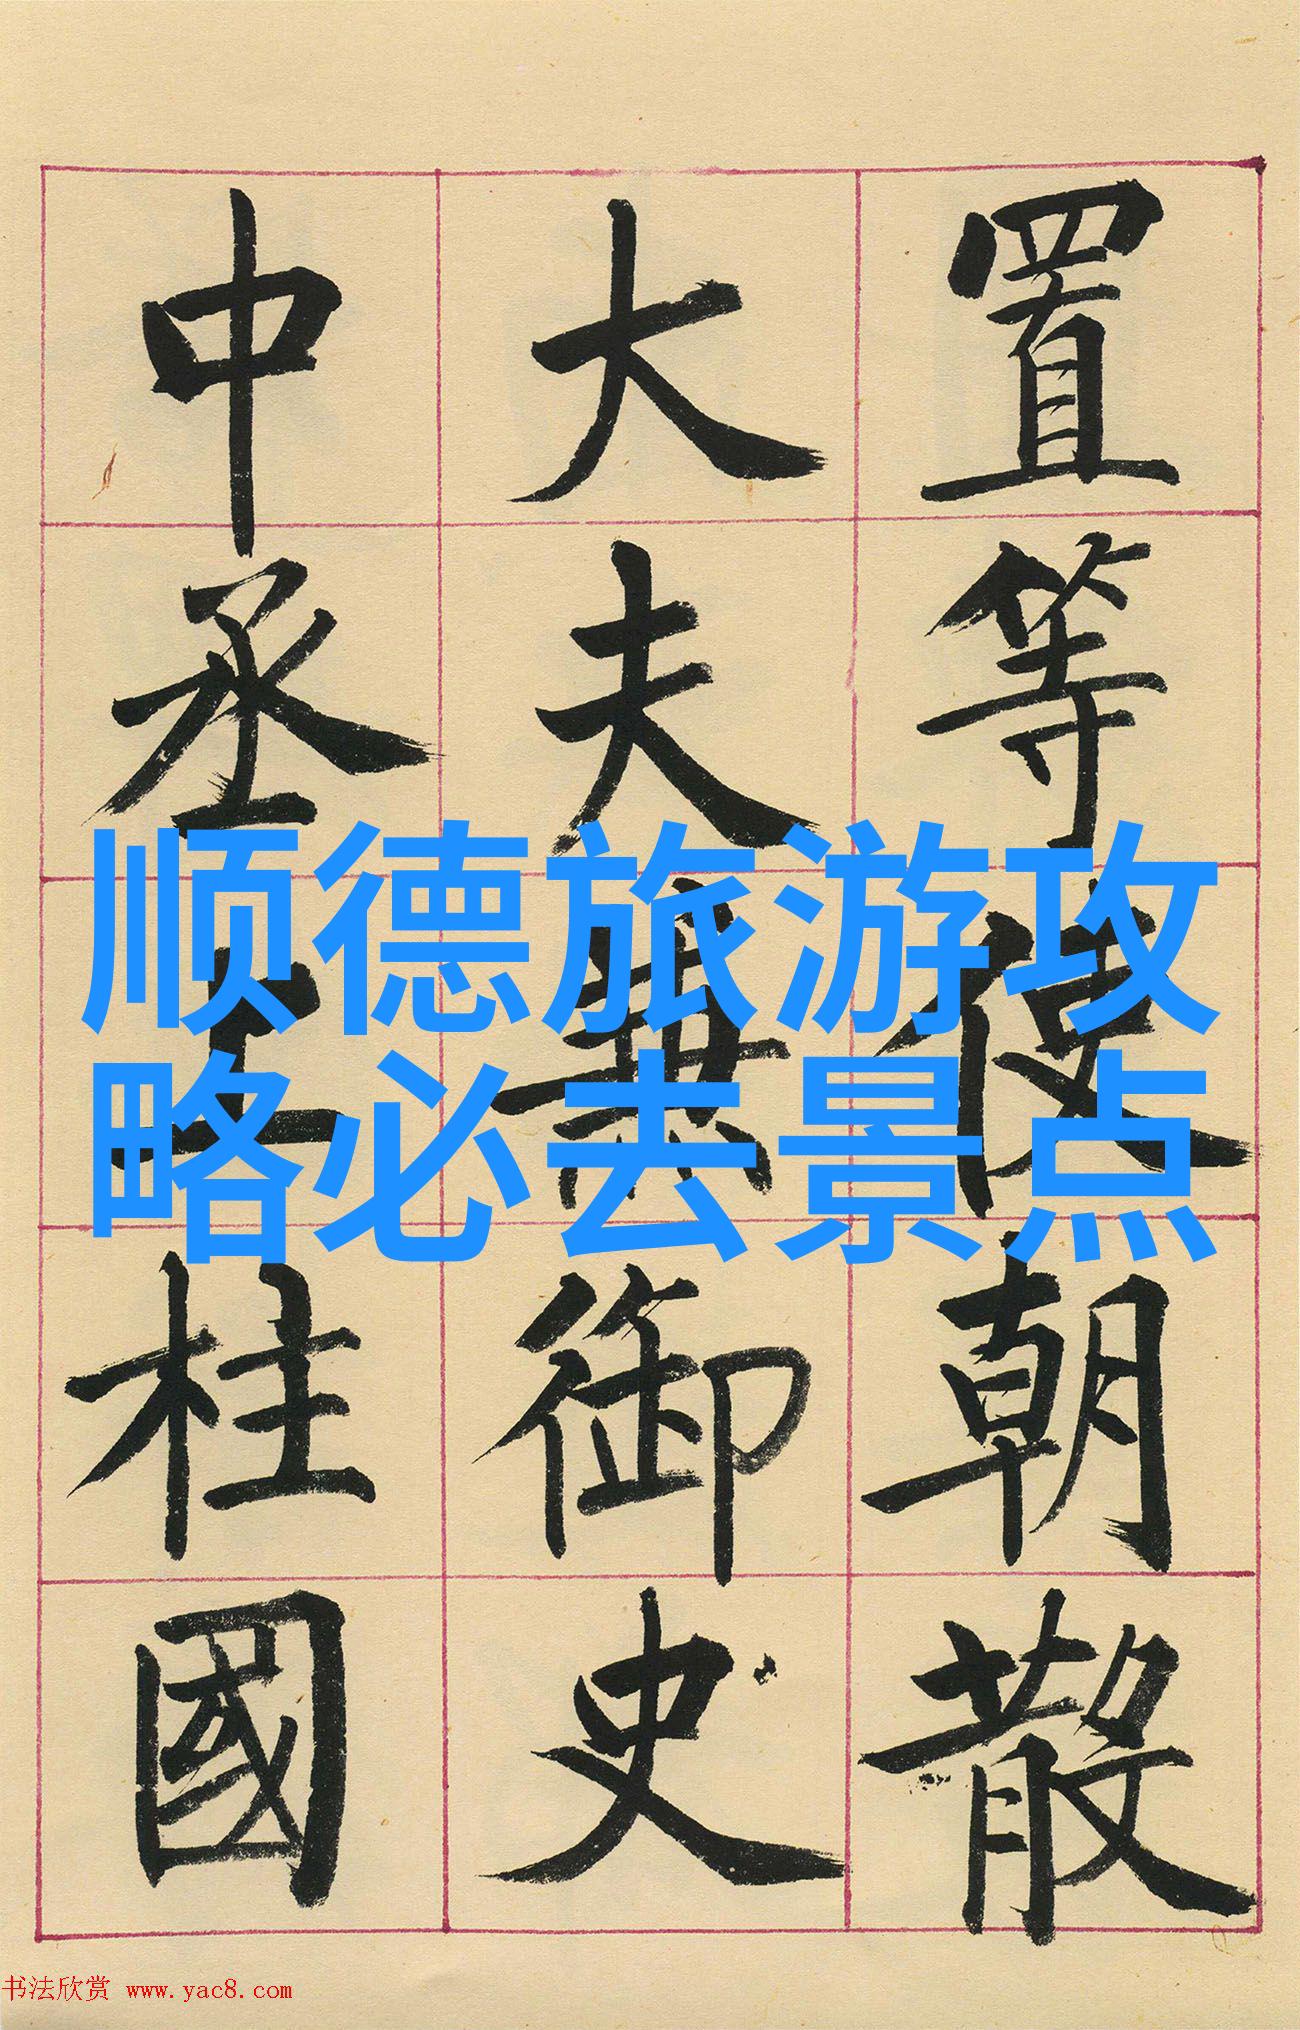 置等使朝散
大夫兼御史
中丞上柱國
顺德旅游攻
略必去景点
书法欣赏 www.yac8.com